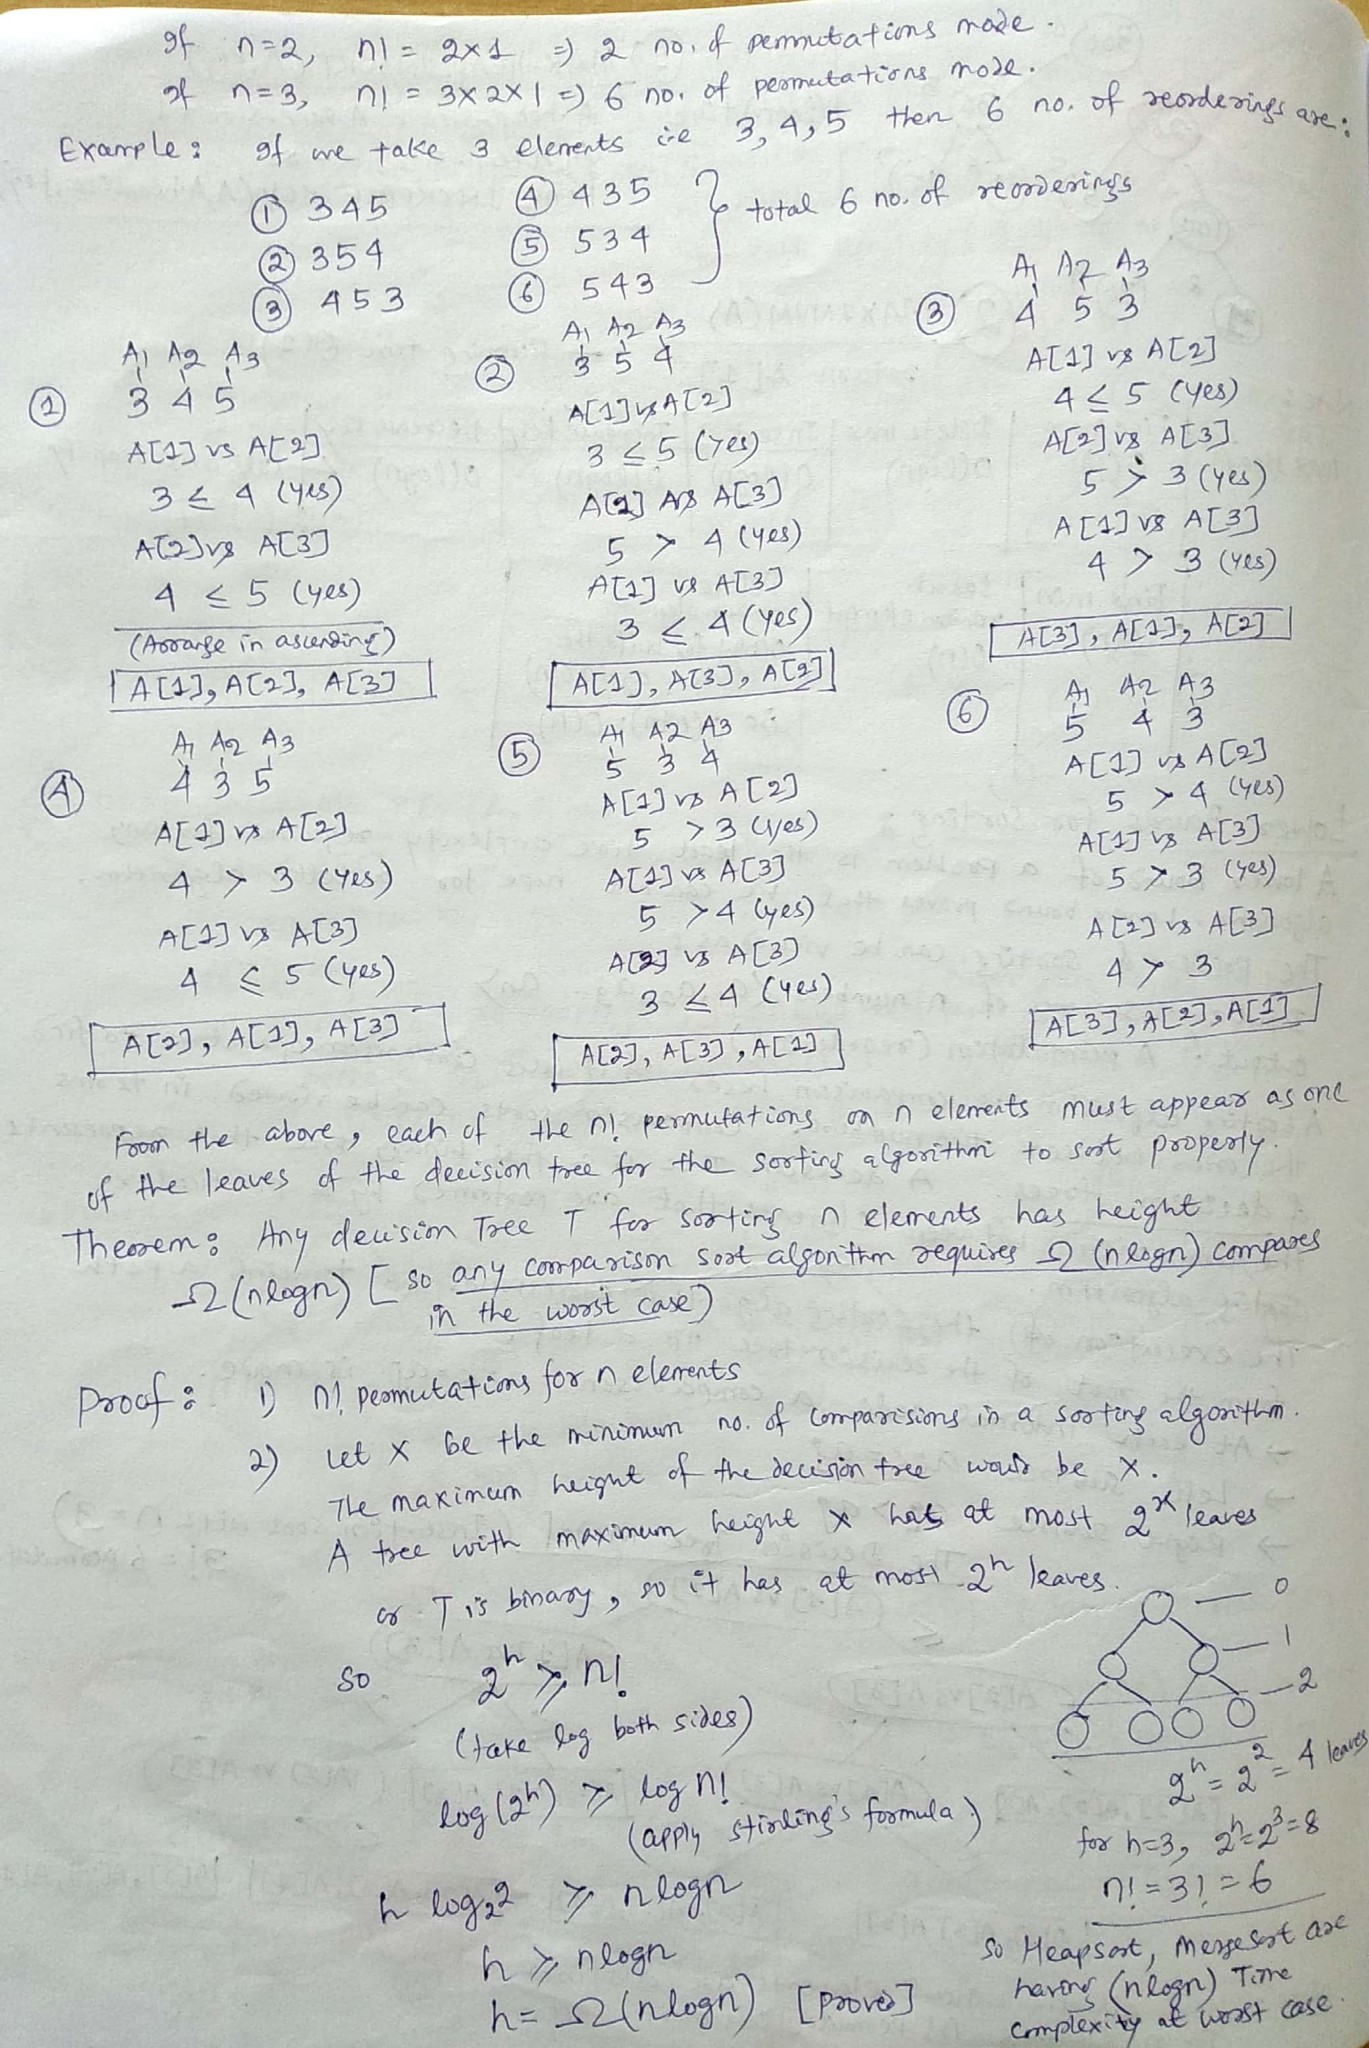 If n=2, n! = 2×1 => 2 no. of permutations made.
If n=3, n! = 3×2×1 => 6 no. of permutations made.
Example: If we take 3 elements i.e 3, 4, 5 then 6 no. of reorderings are:
① 345 ④ 435
② 354 ⑤ 534
③ 453 ⑥ 543
} total 6 no. of reorderings
①
A1 A2 A3
3 4 5
A[1] vs A[2]
3 ≤ 4 (yes)
A[2] vs A[3]
4 ≤ 5 (yes)
(Arrange in ascending)
A[1], A[2], A[3]
②
A1 A2 A3
3 5 4
A[1] vs A[2]
3 ≤ 5 (Yes)
A[2] vs A[3]
5 > 4 (yes)
A[1] vs A[3]
3 ≤ 4 (yes)
A[1], A[3], A[2]
③
A1 A2 A3
4 5 3
A[1] vs A[2]
4 ≤ 5 (yes)
A[2] vs A[3]
5 > 3 (yes)
A[1] vs A[3]
4 > 3 (yes)
A[3], A[1], A[2]
④
A1 A2 A3
4 3 5
A[1] vs A[2]
4 > 3 (yes)
A[1] vs A[3]
4 ≤ 5 (yes)
A[2], A[1], A[3]
⑤
A1 A2 A3
5 3 4
A[1] vs A[2]
5 > 3 (yes)
A[1] vs A[3]
5 > 4 (yes)
A[2] vs A[3]
3 ≤ 4 (yes)
A[2], A[3], A[1]
⑥
A1 A2 A3
5 4 3
A[1] vs A[2]
5 > 4 (yes)
A[1] vs A[3]
5 > 3 (yes)
A[2] vs A[3]
4 > 3
A[3], A[2], A[1]
From the above, each of the n! permutations on n elements must appear as one
of the leaves of the decision tree for the sorting algorithm to sort properly.
Theorem: Any decision Tree T for sorting n elements has height
Ω(nlogn) [so any comparison sort algorithm requires Ω (nlogn) compares
in the worst case)
Proof: 1) n! permutations for n elements
2) Let x be the minimum no. of comparisions in a sorting algorithm.
The maximum height of the decision tree would be x.
A tree with maximum height x has at most 2^x leaves
or T is binary, so it has at most 2^h leaves.
so 2^h ≥ n!
(take log both sides)
log(2^h) ≥ log n!
(apply stirling's formula)
h log₂2 ≥ nlogn
h ≥ nlogn
h = Ω(nlogn) [proved]
0
1
2
2^h = 2^2 = 4 leaves
for h=3, 2^h=2^3=8
n! = 3! = 6
So Heapsort, Mergesort are
having (nlogn) Time
complexity at worst case.